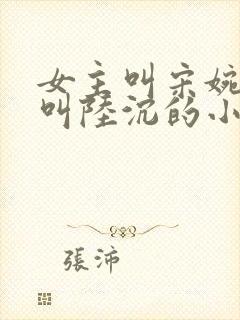 女主叫宋婉
叫陸沉的小
張沛